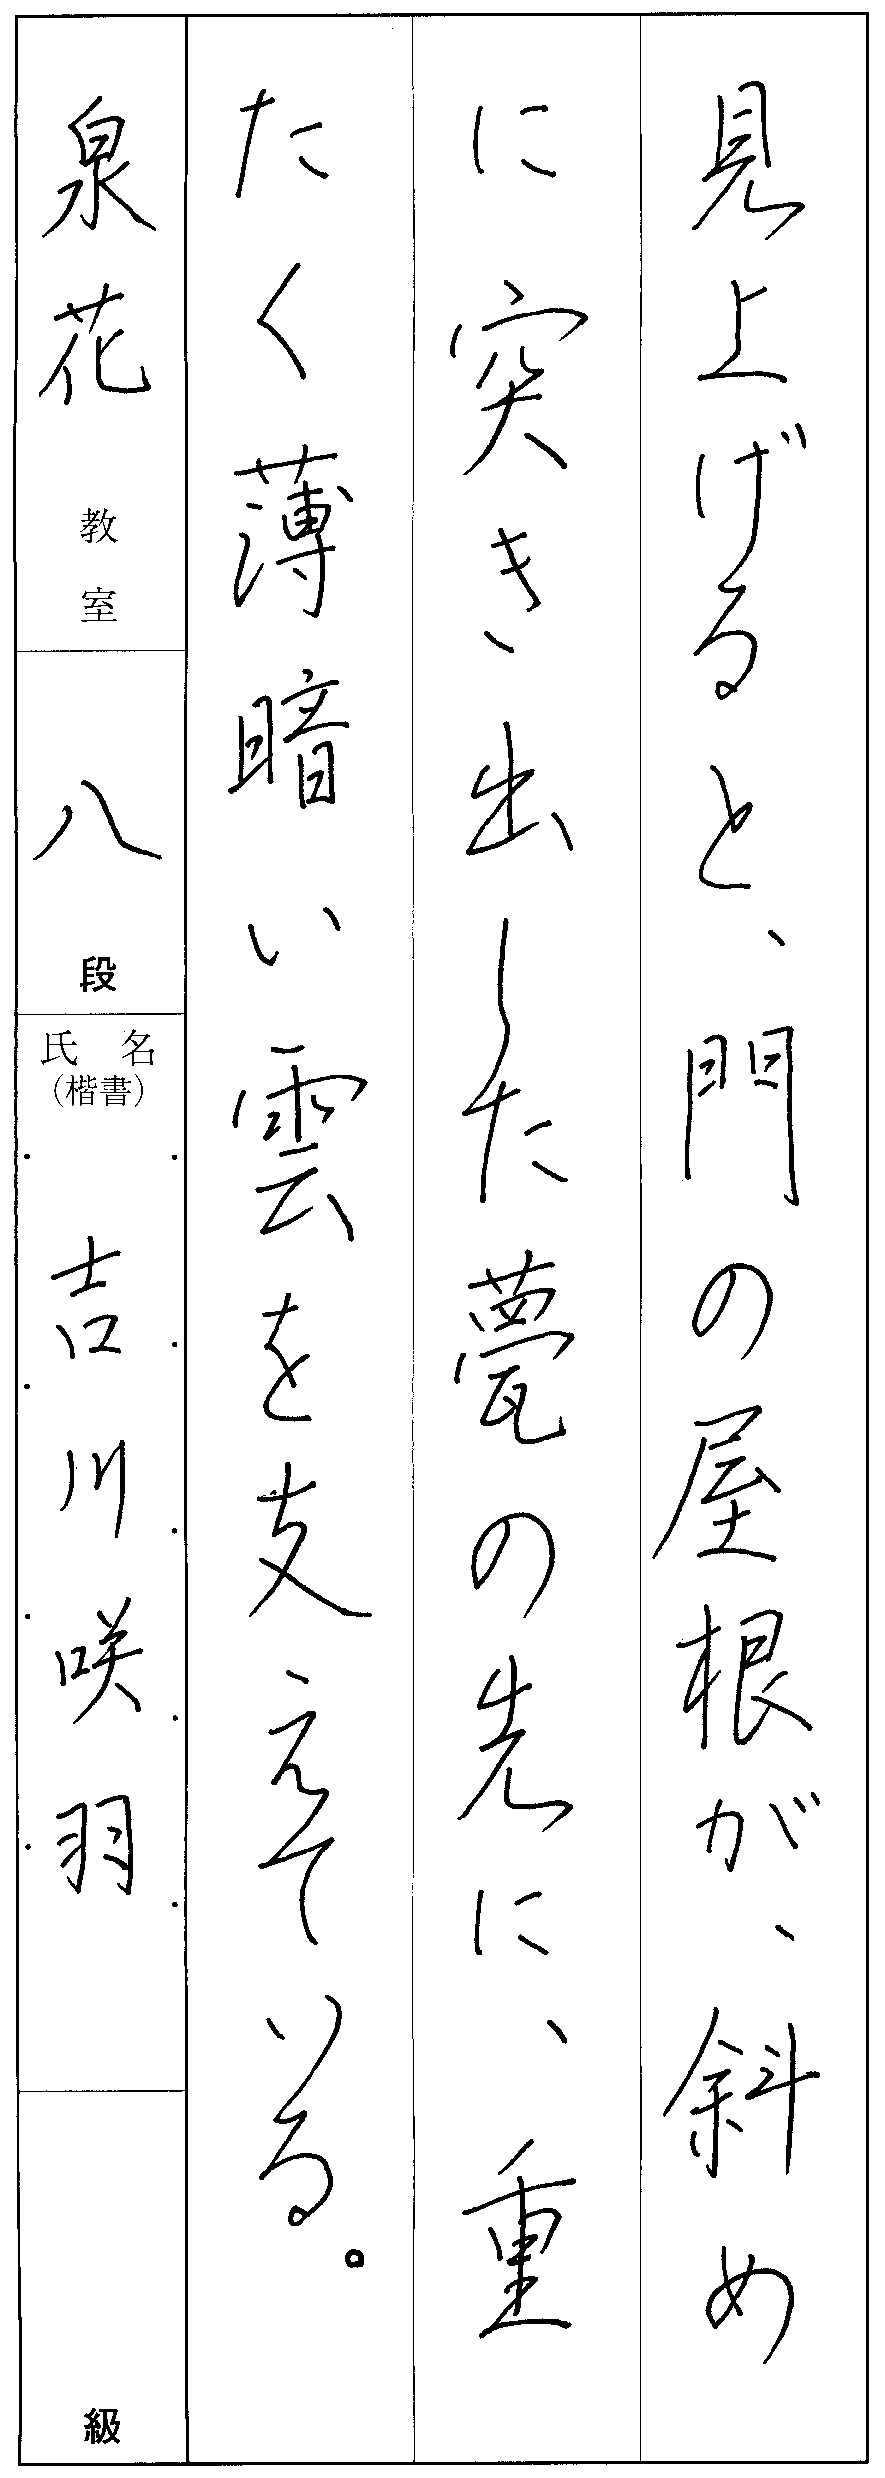 見上げると、門の屋根が、斜め
に突き出した甍の先に、重
たく薄暗い雲を支えている。
泉花教室
八段
氏名
(楷書)
吉川咲羽
級